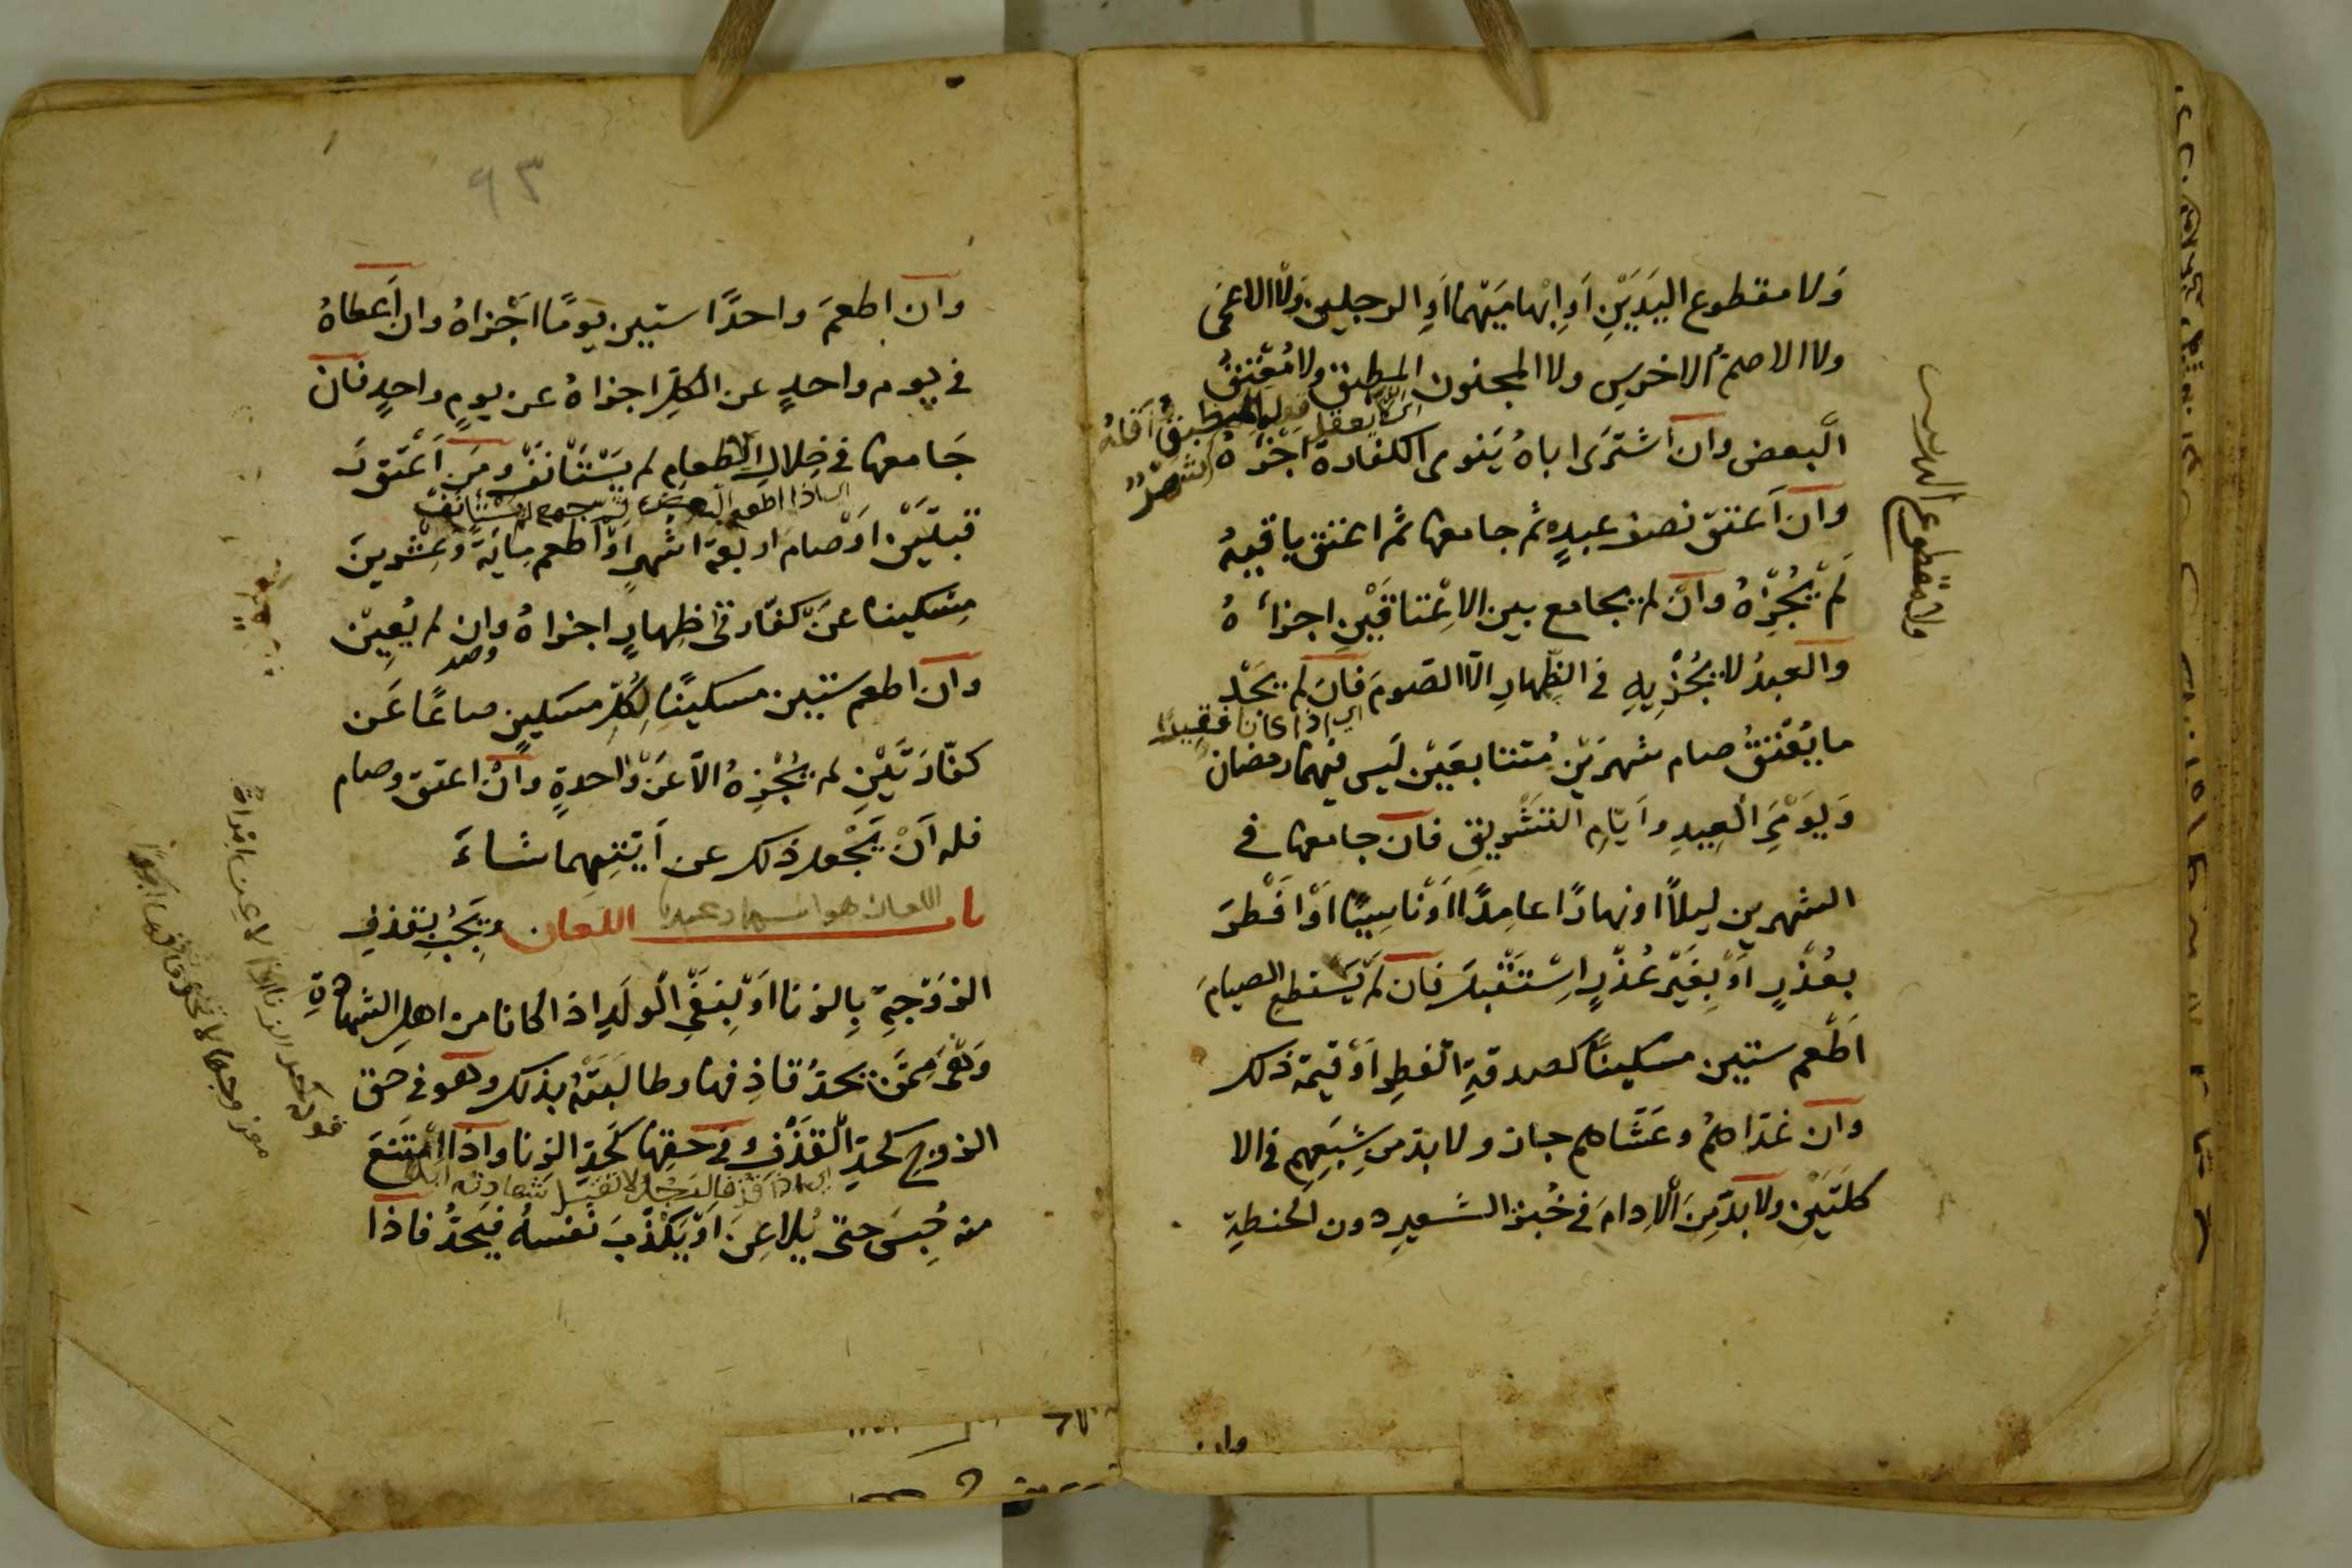 وَلا مقطوع اليَدَيْنِ اَوِ ابْهامَيْهما اَوِ الرجلين وَلا الاعمَى
ولا الاصمّ الاخرس ولا المجنون المطبق ولا مُعْتَقُ
اى لا يعقل
البعض وان اشترَى اباهُ يَنوى الكفارة اجْزَاهُ
وان اَعتقَ نصف عبدِهِ ثم جامعها ثمّ اعتق باقيهُ
لَمْ يُجْزِهُ وانْ لم يجامع بين الاِعْتاقَيْنِ اجزأهُ
والعبدُ لا يُجْزِيهِ فى الظِّهارِ الّا الصّومَ فَانْ لم يَجْد
اى اذا كان فقيرًا
ما يُعْتقُ صام شهرَيْن مُتتابعَيْن لَيس فيهما رمضان
وَيَوْمَىِ العِيدِ واَيّامِ التشْريقِ فان جامعها فى
الشهرين ليلاً او نهارًا عامِدًا اَوْ ناسِيًا اَوْ افْطرَ
بعُذْرٍ اَوْ بِغَيْرِ عُذْرٍ اسْتَقْبلَ فان لَمْ يَسْتطعِ الصيامَ
اَطْعم ستين مسكينًا كصدقةِ الفطرِ اَوْ قيمة ذلك
وان غدّاهُمْ وعَشّاهم جاز ولا بدّ من شِبَعِهِمِ فى الا
كلتَيْنِ ولا بدّ مِنَ الْاِدامَ فى خُبز الشَّعيرِ دون الحنطةِ
ولا مقطوع اليدين
وان
٩٣
وان اطعمَ واحدًا ستين يومًا اَجْزاهُ وان اَعطاهُ
فى يوم واحدٍ عن الكلِّ اجزاهُ عن يومٍ واحدٍ فان
جَامعها فى خِلالِ الاطعامِ لم يَسْتَأنفْ ومَن اَعْتَق رَ
اى اذا اطعم البعض ثم جامع لم يستأنف
قبَتَيْن اَوْ صام اربعة اشهرٍ اَوْ اطعم مِايَةً وعِشْرِينَ
مِسكينا عَنْ كفّارتَىْ ظِهارٍ اجزاهُ وان لم يُعيِّنْ
وان اطعم ستين مسكينًا لِكُلِّ مسكينٍ صاعًا عَن
كفّارَتَيْنِ لم يُجْزِهُ الاّ عَنْ واحدةٍ وانْ اعتق وصام
فله اَنْ يَجْعلَ ذلك عن اَيّتِهما شاءَ
باب اللعان ويَجِبُ بِقذفِ
اللعان هو اسم
الزوْجةِ بِالزنا اَوْ بِنَفْىِ الْولَدِ اذا كانا من اهلِ الشهادةِ
وَهْىَ مِمَّنْ يحدّ قاذِفها وطالَبَتْهُ بذلك وهو فى حق
الزوج كحدِّ الْقذْفِ وفى حقِها كَحَدِّ الزنا واذا امْتَنَعَ
اى اذا قذف الرجل لا تقبل شهادته ابدًا
منه حُبِسَ حتّى يُلاعِنَ اوْ يَكْذِبَ نفسهُ فيُحدُّ فاذا